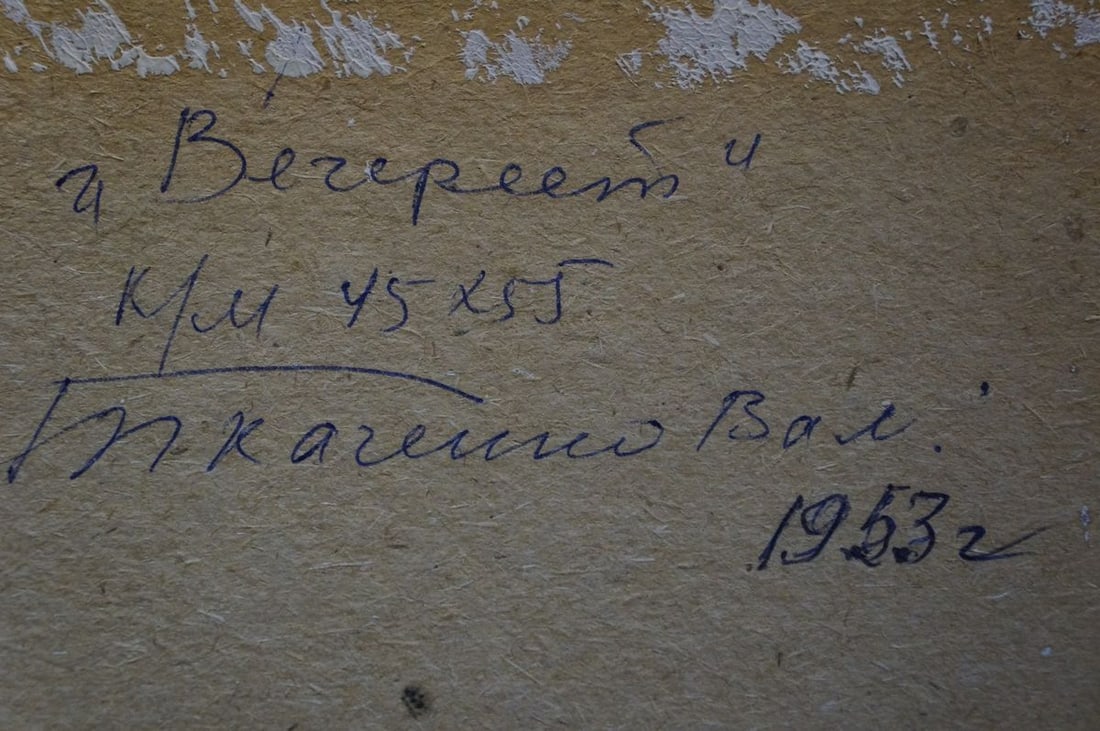 „Вечереет"
к/м 45х55
Ткаченко Вал.
1953 г